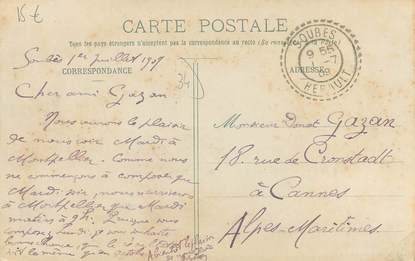 15 €
CARTE POSTALE
Tous les pays étrangers n'acceptent pas la correspondance au recto (Se
CORRESPONDANCE
ADRESSE
SOUBES
HERAULT
34
Soubès 1er juillet 1909
Cher ami Gazan
Nous aurons le plaisir
de nous voir Mardi à
Montpellier. Comme nous
ne commençons à composer que
Mardi soir, nous n'arriverons
à Montpellier que Mardi
matin à 9h. Puisque vous
composez Lundi je vous souhaite
bonne chance, que le
soit le même qu'en
Monsieur Donat Gazan
18, rue de Cronstadt
à Cannes
Alpes-Maritimes